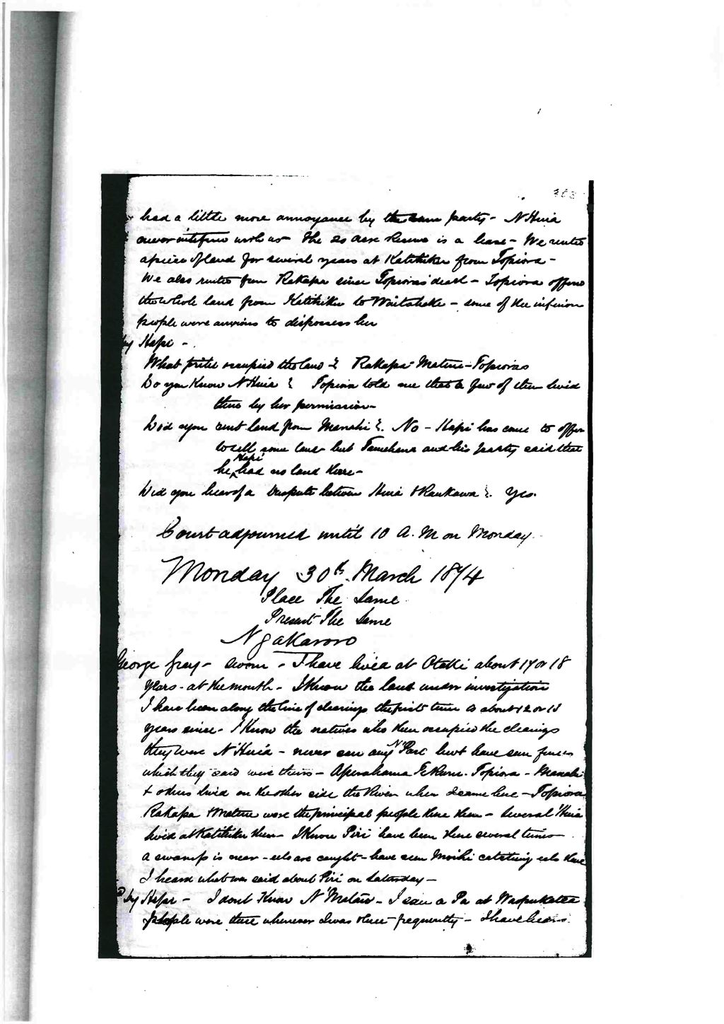 363
had a little more annoyance by the same party - N Huia
never interfere with us - The 20 acre Reserve is a lease - We rented
a piece of land for several years at Katihiku from Topiora -
We also rented from Rakapa since Topiora's death - Topiora offered
the whole land from Katihiku to - some of the inferior
people were anxious to dispossess her
by Hapi -
What occupied the land? Rakapa - Matene - Topioras
Do you Know N Huia? Topiora told me that a few of them lived
there by her permission -
Did you rent land from Manahi? No - Hapi has come to offer
to sell some land but Tamehana and his party said that
he Hapi had no land here -
Did you hear of a Dispute between Huia & Raukawa? Yes.
Court adjourned until 10 A.M on Monday.
Monday 30th March 1874
Place The Same
Present The Same
Ngakaroro
George Gray - sworn - I have lived at Otaki about 17 or 18
years - at the mouth - I Know the land under investigation
I have been along the line of clearings the first time is about 12 or 13
years since - I Know the natives who then occupied the clearings
they were N Huia - never saw any N Pare but have seen fences
which they said were theirs - Aperahama Te Ruru - Topiora - Manahi
& others lived on the other side the River when I came here - Topiora
Rakapa & Matene were the principal people there then - Several Huia
lived at Katihiku then - I Know Piri have been there several times
a swamp is near - eels are caught - have seen Moihi catching eels there
I heard what was said about Piri on Saturday -
by Hapi - I dont Know N - I saw a Pa at
people were there whenever I was there - frequently - I have heard